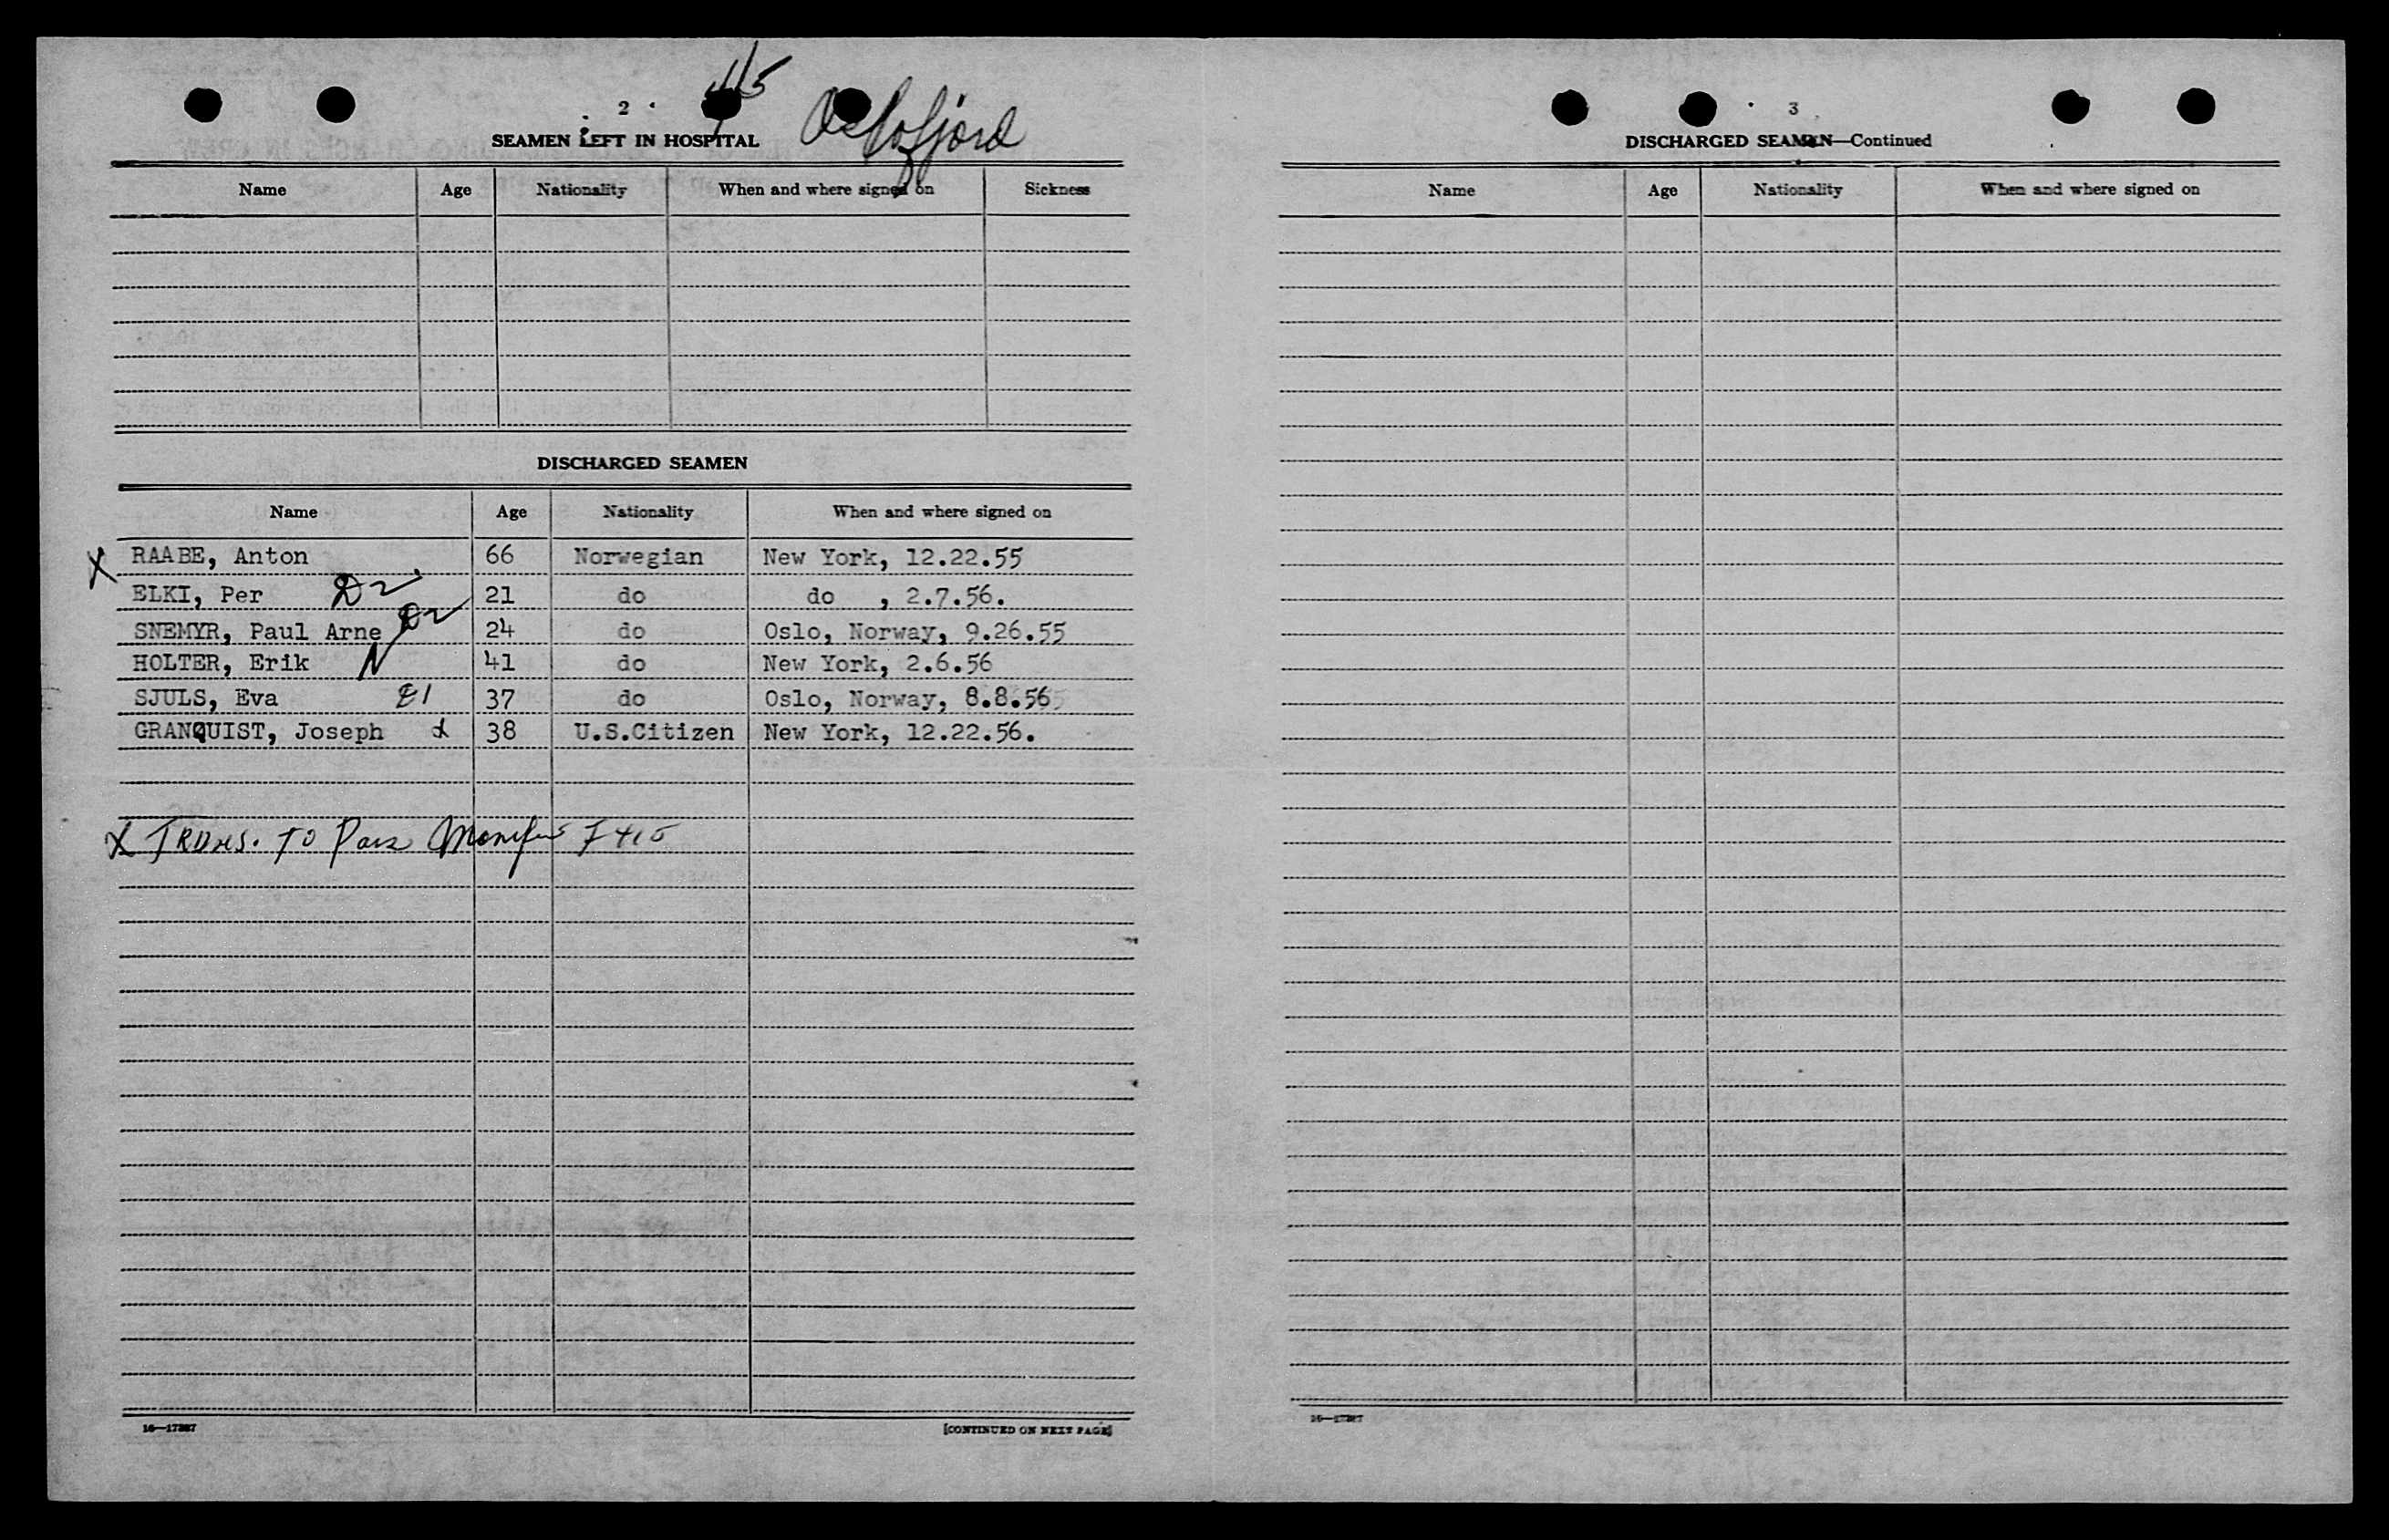 2
415
Oslofjord
SEAMEN LEFT IN HOSPITAL
Name Age Nationality When and where signed on Sickness
DISCHARGED SEAMEN
Name Age Nationality When and where signed on
X RAABE, Anton 66 Norwegian New York, 12.22.55
ELKI, Per D2 21 do do , 2.7.56.
SNEMYR, Paul Arne D2 24 do Oslo, Norway, 9.26.55
HOLTER, Erik N 41 do New York, 2.6.56
SJULS, Eva E1 37 do Oslo, Norway, 8.8.56
GRANQUIST, Joseph d 38 U.S.Citizen New York, 12.22.56.
X TRANS. TO Pass Manifest I 415
16—17387
[CONTINUED ON NEXT PAGE]
3
DISCHARGED SEAMEN—Continued
Name Age Nationality When and where signed on
16—17387